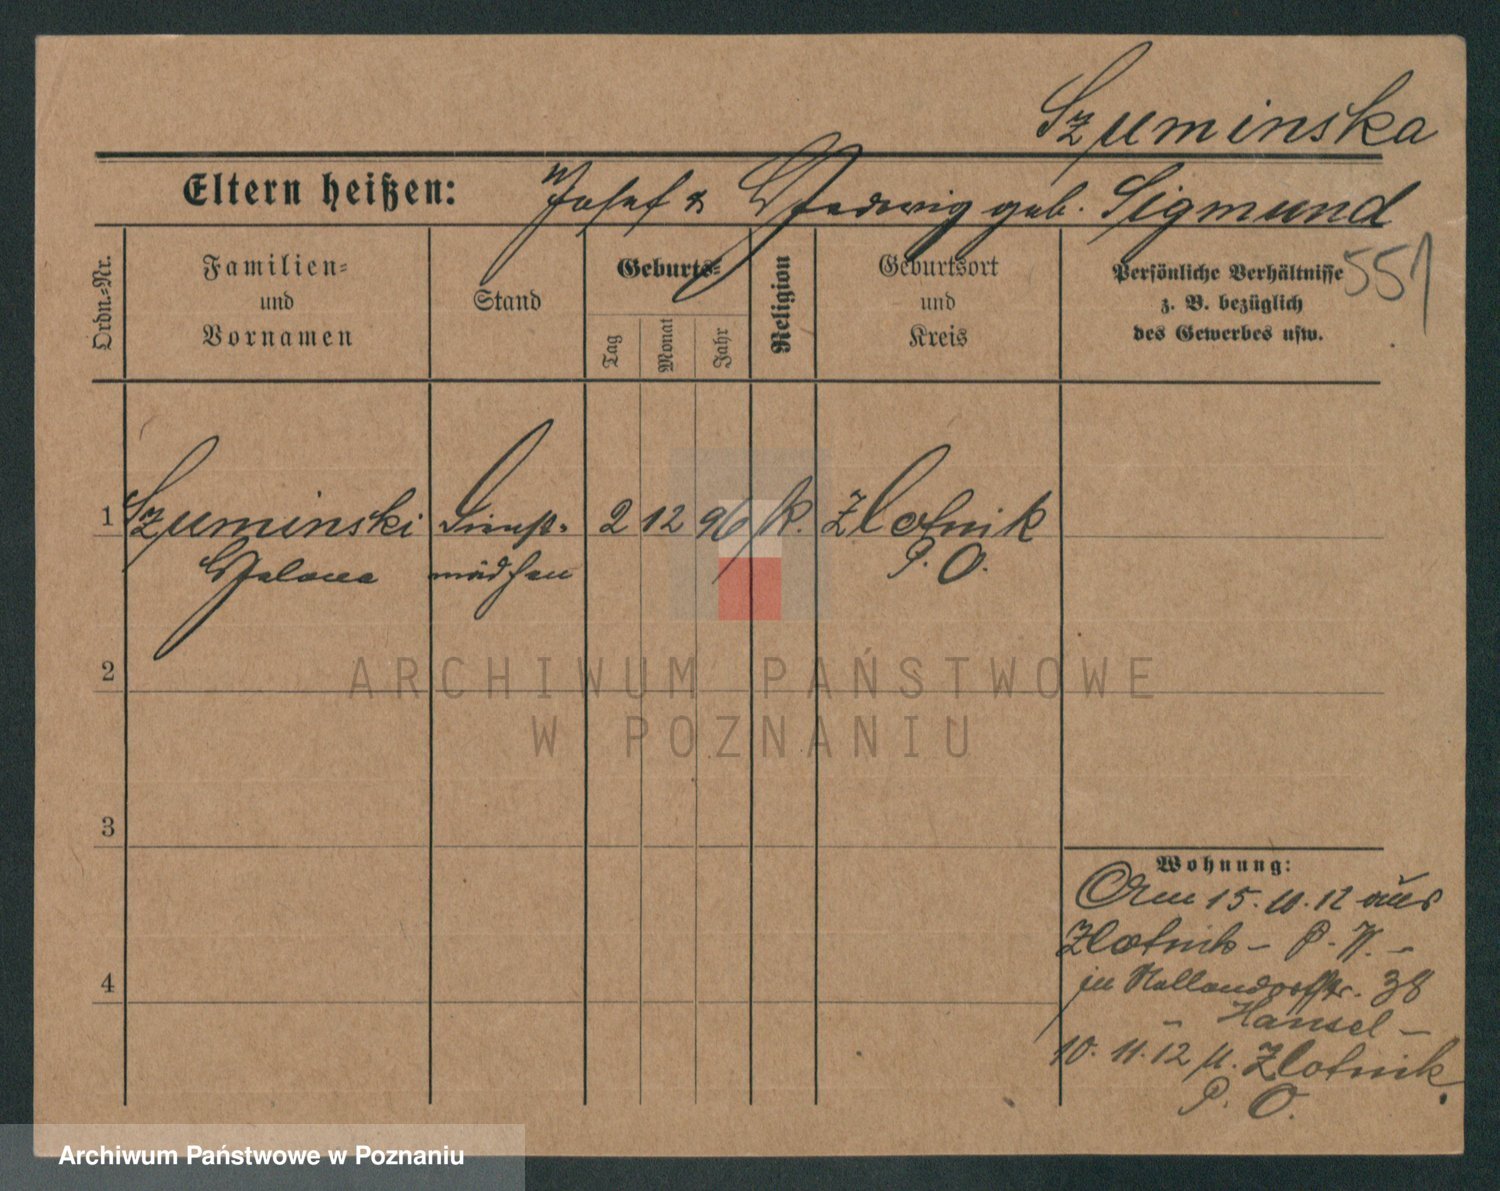 Szuminska
Eltern heißen: Josef & Hedwig geb. Sigmund
551
Ordn.-Nr.
Familien-
und
Vornamen
Stand
Geburts-
Tag
Monat
Jahr
Religion
Geburtsort
und
Kreis
Persönliche Verhältnisse
z. B. bezüglich
des Gewerbes usw.
1 Szuminski Dienst- 2 12 96 k. Zlotnik
Helene mädchen P. O.
2
3
4
Wohnung:
Am 15. 10. 12 aus
Zlotnik - P. W. -
in Hollandorffstr. 38
- Hansel -
10. 11. 12 n. Zlotnik
P. O.
ARCHIWUM PAŃSTWOWE
W POZNANIU
Archiwum Państwowe w Poznaniu